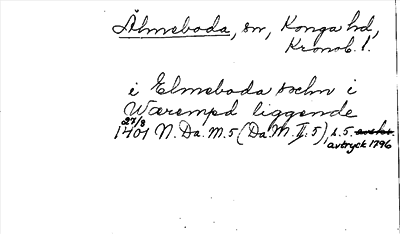 Älmeboda, sn, Konga hd,
Kronob. l.
i Elmeboda sochn i
Wærempd liggende
27/8
1401 N. Da. M. 5 (Da. M. II: 5), s. 5.
avtryck 1796